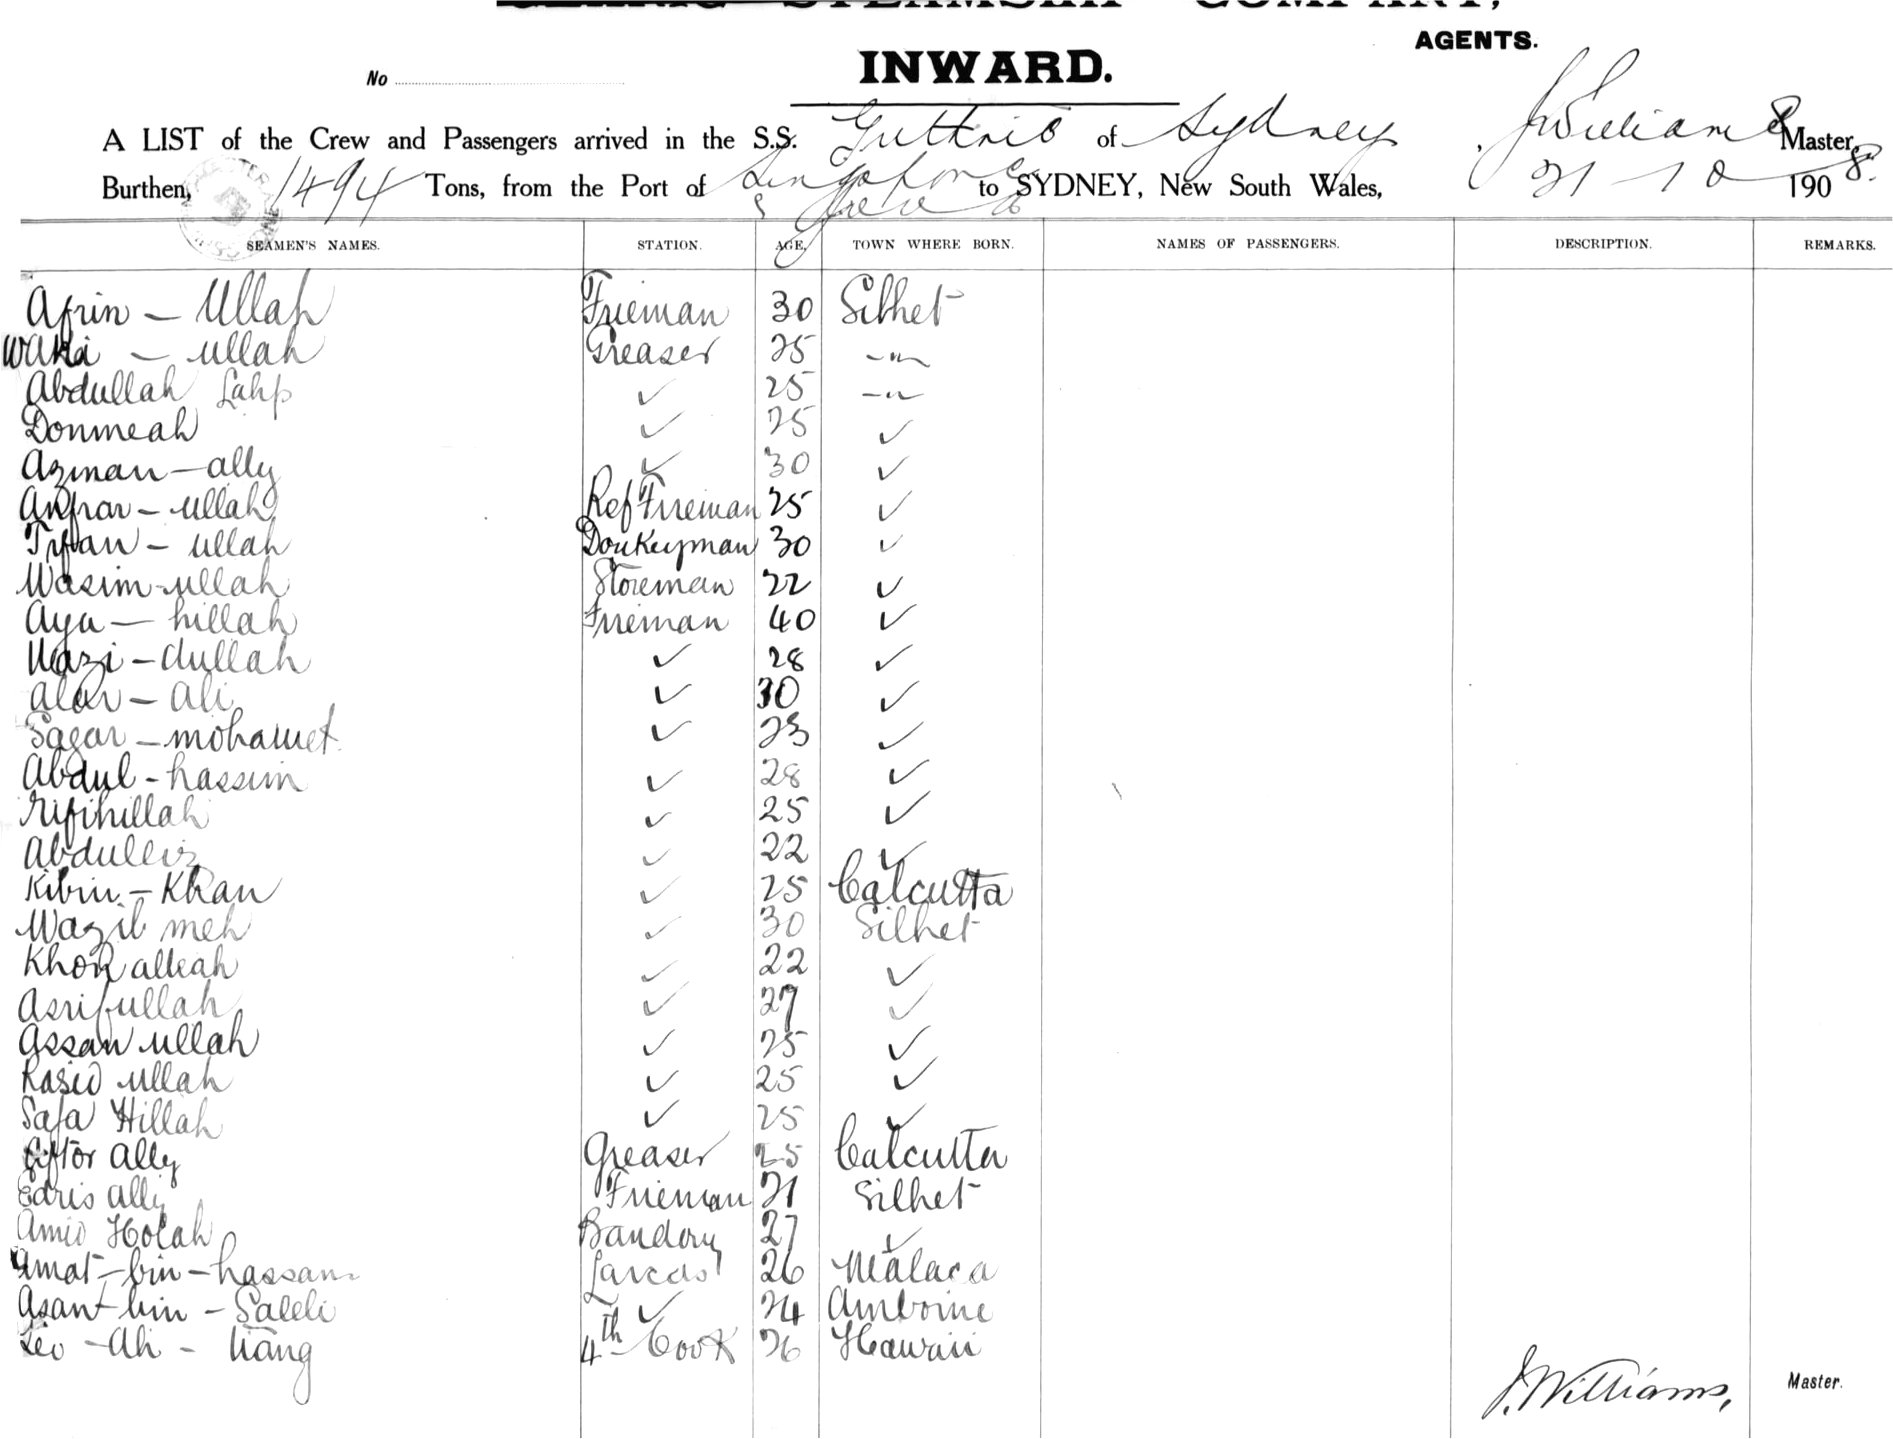 STEAMSHIP COMPANY,
AGENTS.
INWARD.
No
A LIST of the Crew and Passengers arrived in the S.S. Guthrie of Sydney J Williams Master,
Burthen, 1494 Tons, from the Port of Singapore to SYDNEY, New South Wales, 21-10 1908.
SEAMEN'S NAMES. STATION. AGE, TOWN WHERE BORN. NAMES OF PASSENGERS. DESCRIPTION. REMARKS.
Afrin - Ullah Fireman 30 Silhet
Waki - ullah Greaser 25 -"-
Abdullah 25 -"-
Donmeah ✓ 25 ✓
Azman - ally ✓ 30 ✓
- ullah Ref Fireman 25 ✓
- ullah Donkeyman 30 ✓
Wasim - ullah Storeman 22 ✓
Aya - hillah Fireman 40 ✓
Wazi - dullah ✓ 28 ✓
- ali ✓ 30 ✓
Sagar - mohamet ✓ 23 ✓
Abdul - hassim ✓ 28 ✓
✓ 25 ✓
✓ 22 ✓
Kibin - Khan ✓ 25 Calcutta
Wazil meh ✓ 30 Silhet
Khon alleah ✓ 22 ✓
Asrifullah ✓ 27 ✓
Assan ullah ✓ 25 ✓
Rasid ullah ✓ 25 ✓
Safa Hillah ✓ 25 ✓
Ally Greaser 25 Calcutta
Edris ally Fireman 21 Silhet
Amid Holah 27 ✓
Amat - bin - hassan 26 Malaca
Asant bin - Saleli ✓ 24 Amboine
Leo - Ah - 4th Cook 26 Hawaii
J. Williams, Master.